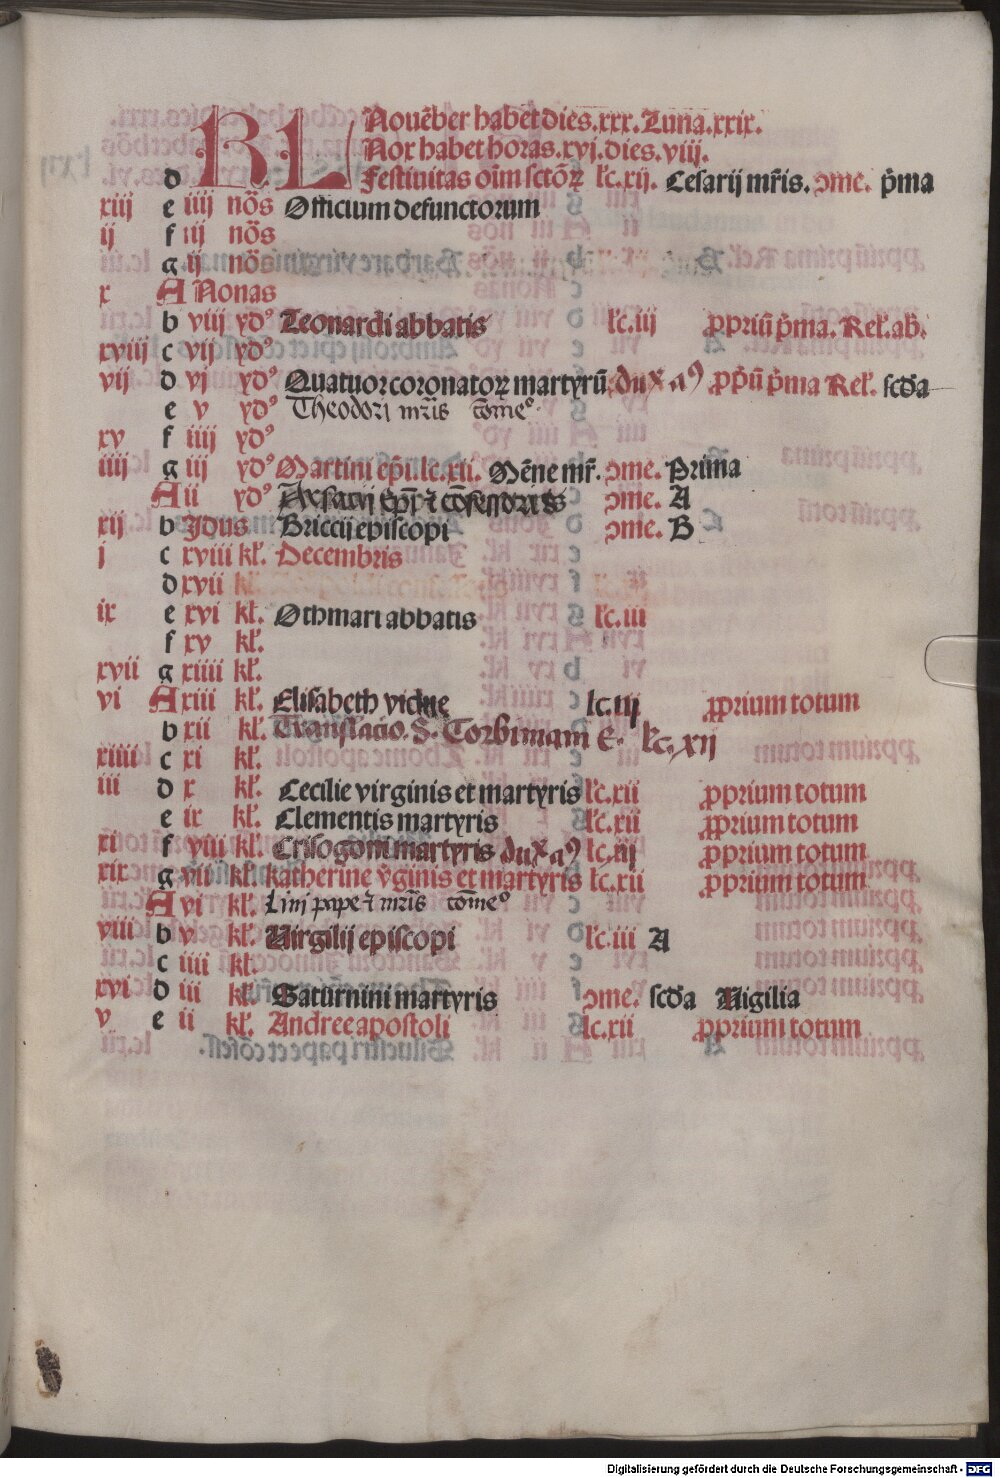 KL Nouēber habet dies.xxx. Luna.xxix.
Nox habet horas.xvj.dies.viij.
d Festiuitas oīm sctōꝝ lc̄.xij. Cesarij mr̄is. ↄme. p̄ma
xiij e iiij nōs Officium defunctorum
ij f iij nōs
g ij nōs
x A Nonas
b viij ydꝰ Leonardi abbatis lc̄.iij ꝓpriū p̄ma. Rel̄. ab.
xviij c vij ydꝰ
vij d vj ydꝰ Quatuor coronatoꝝ martyrū ꝓp̄ū p̄ma Rel̄. scd̄a
e v ydꝰ Theodori mr̄is
xv f iiij ydꝰ
iiij g iij ydꝰ Martini ep̄i. lc̄. xii. Mēne mr̄. ↄme. Prima
A ii ydꝰ ↄme. A
xij b Jdus Briccij episcopi ↄme. B
j c xviii kl̄. Decembris
d xvii kl̄.
ix e xvi kl̄. Othmari abbatis lc̄.iii
f xv kl̄.
xvii g xiiii kl̄.
vi A xiii kl̄. Elisabeth vidue lc.iij ꝓprium totum
b xii kl̄. Translacio. S. Corbiniani E. lc̄.xij
xiiii c xi kl̄.
iii d x kl̄. Cecilie virginis et martyris lc̄.xii ꝓprium totum
e ix kl̄. Clementis martyris lc̄.xii ꝓprium totum
xi f viii kl̄. Crisogoni martyris lc̄.iij ꝓprium totum
xix g vii kl̄. Katherine v̄ginis et martyris lc̄.xii ꝓprium totum
A vi kl̄. Lini pape ⁊ mr̄is
viii b v kl̄. Virgilij episcopi lc̄.iii A
c iiii kl̄.
xvi d iii kl̄. Saturnini martyris ↄme. scd̄a Vigilia
v e ii kl̄. Andree apostoli lc.xii ꝓprium totum
Digitalisierung gefördert durch die Deutsche Forschungsgemeinschaft - DFG